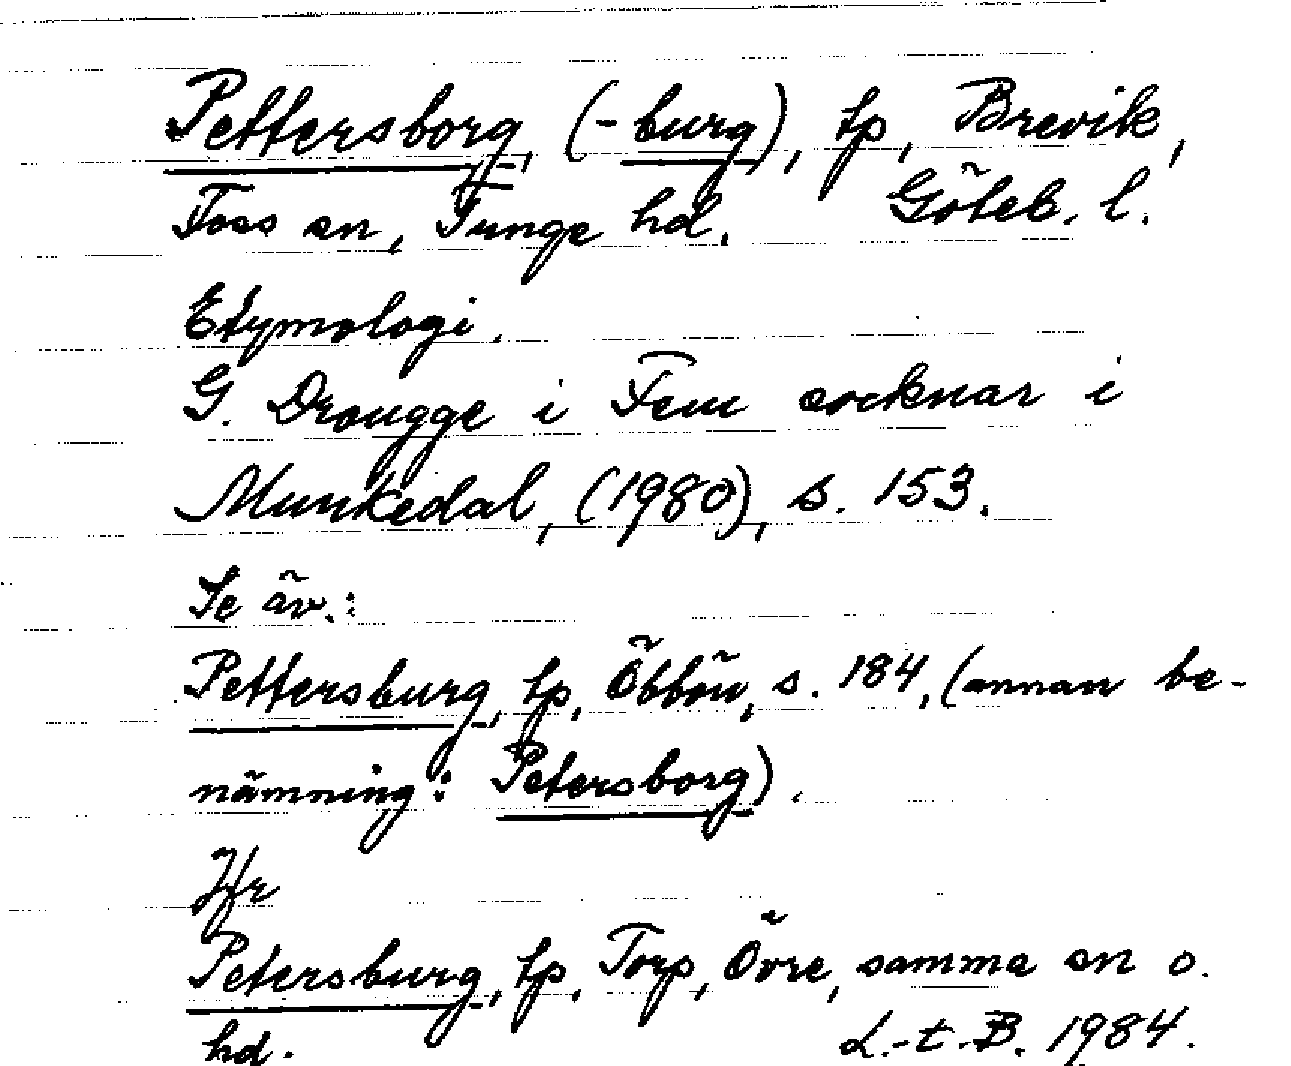 Pettersborg, (-burg), tp, Brevik,
Foss sn, Tunge hd. Göteb. l.
Etymologi.
G. Drougge i Fem socknar i
Munkedal, (1980), s. 153.
Se äv.:
Pettersburg, tp, Öbbön, s. 184, (annan be-
nämning: Petersborg).
Jfr
Petersburg, tp, Torp, Övre, samma sn o.
hd. L.-t.-B. 1984.